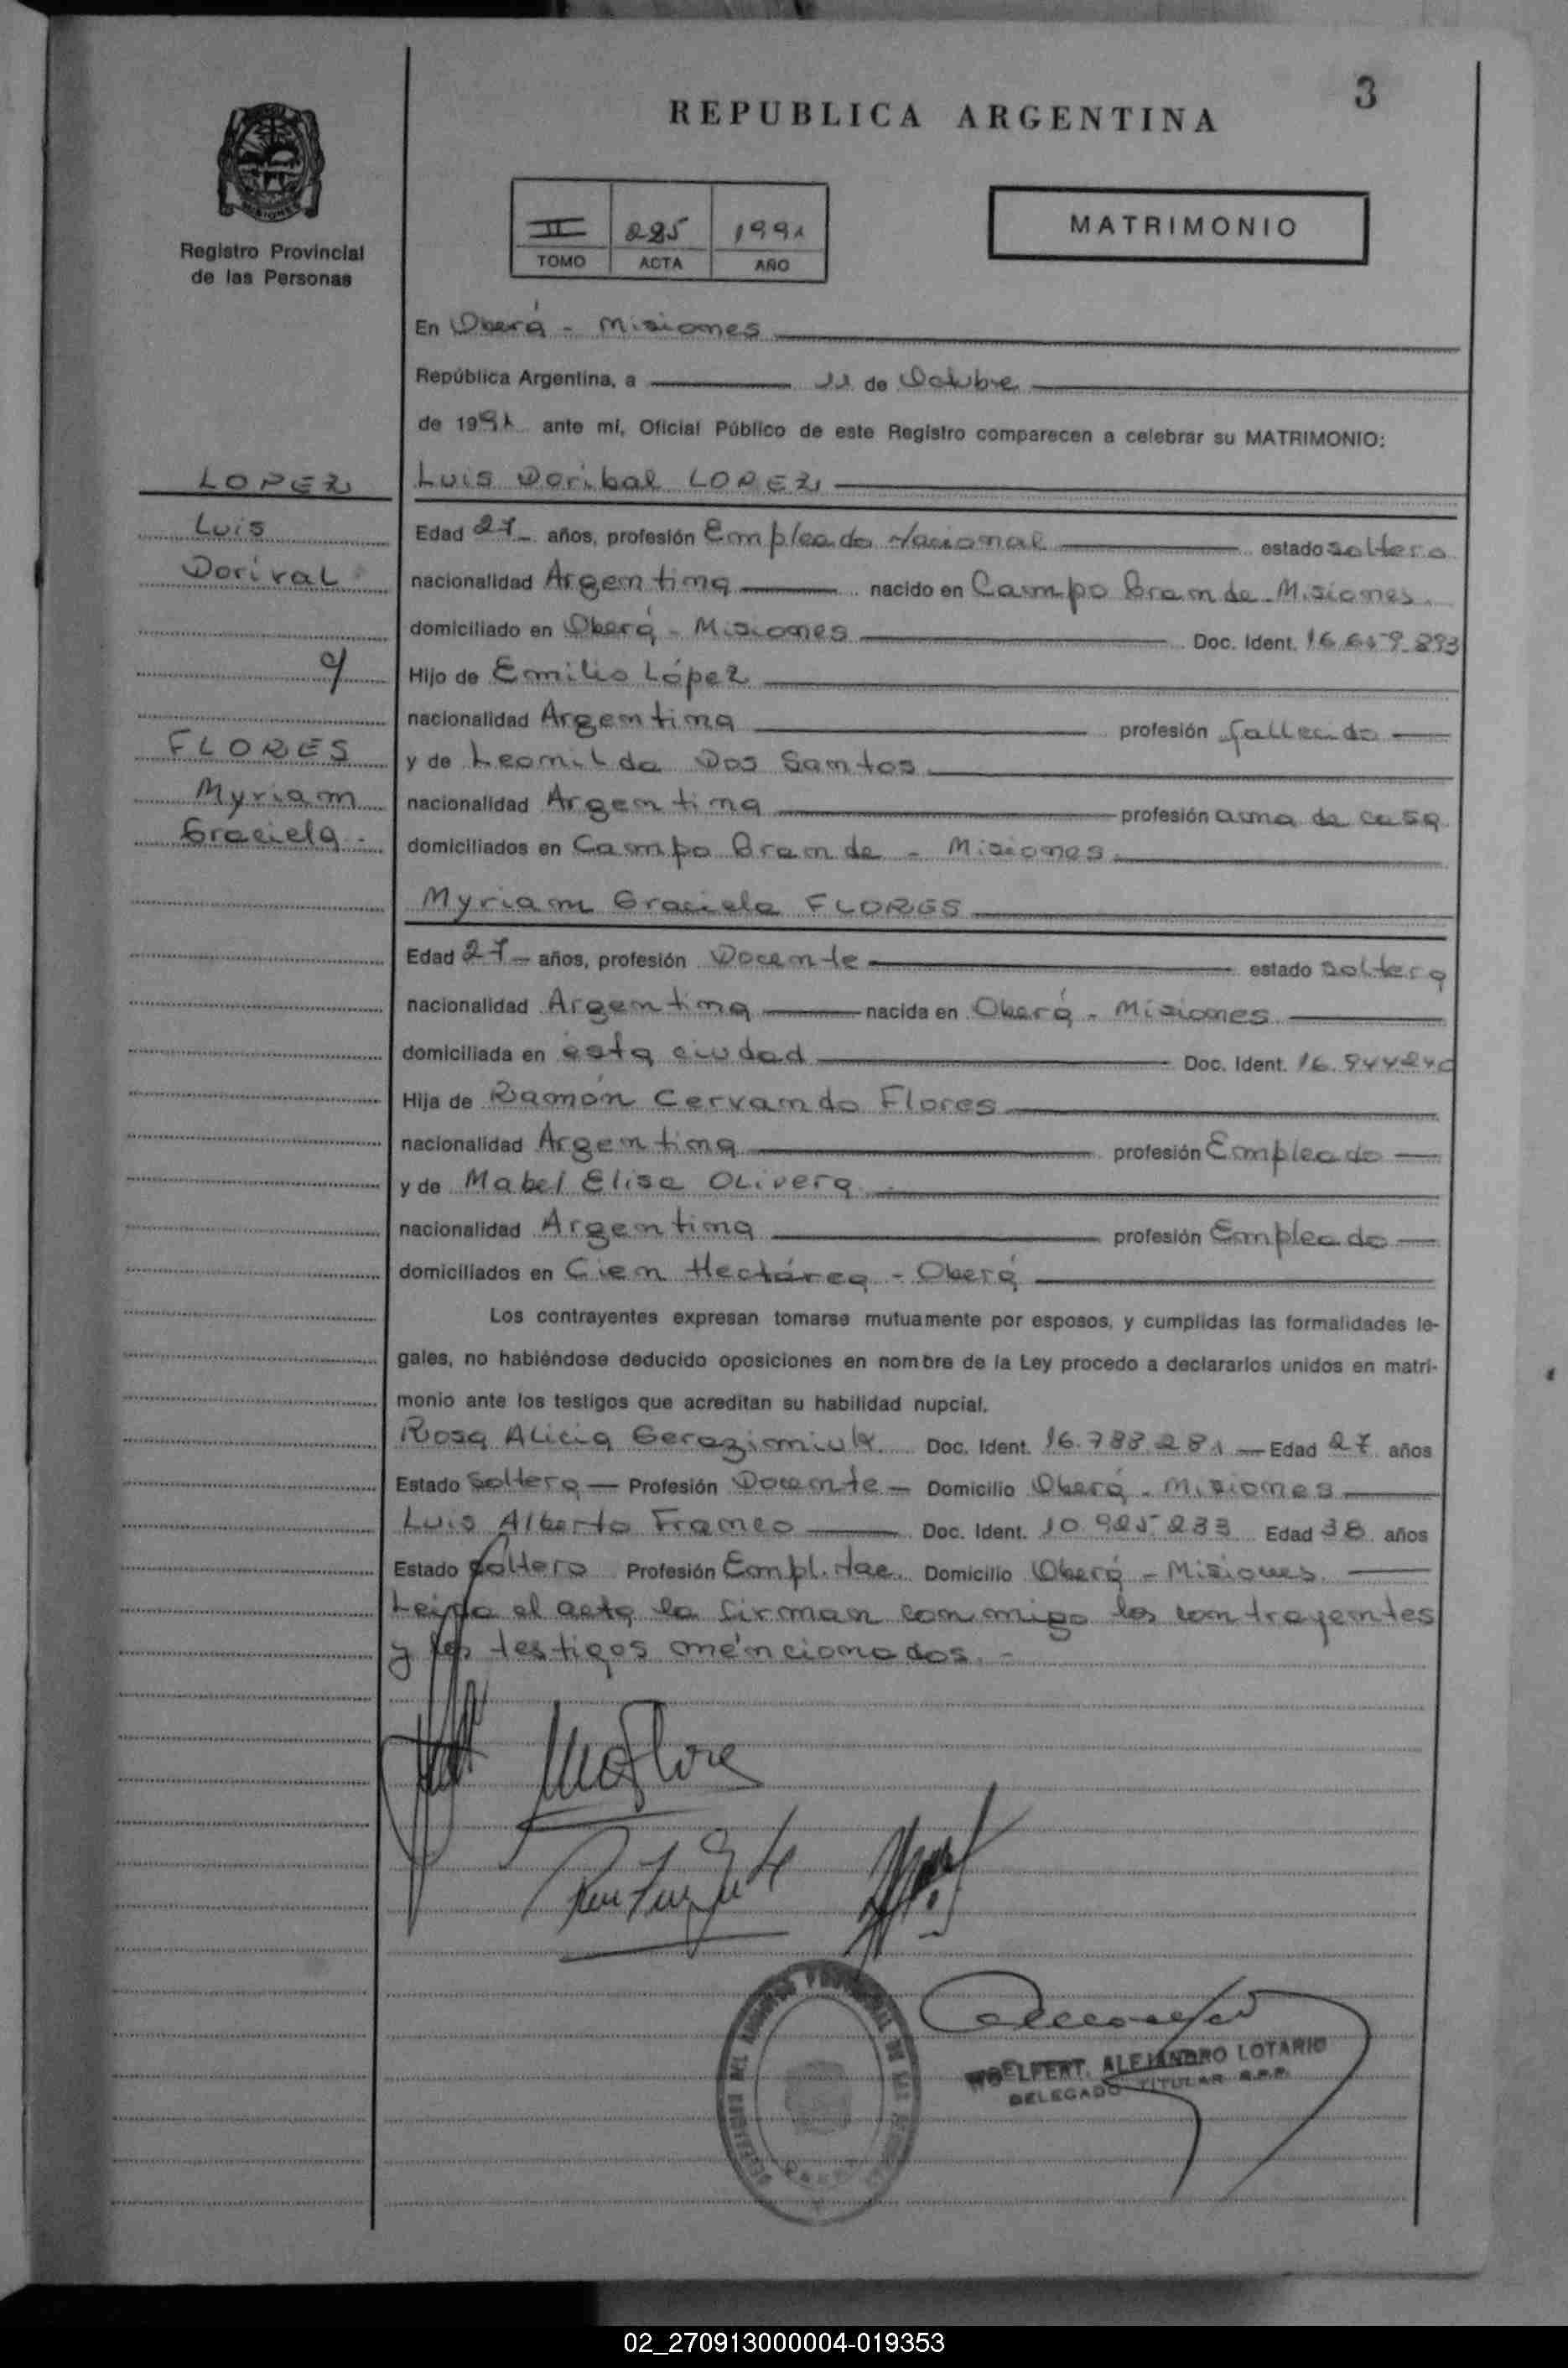 3
REPUBLICA ARGENTINA
Registro Provincial
de las Personas
II 285 1991
TOMO ACTA AÑO
MATRIMONIO
En Oberá - Misiones
República Argentina, a 11 de Octubre
de 1991 ante mí, Oficial Público de este Registro comparecen a celebrar su MATRIMONIO:
LOPEZ
Luis
Dorival
y
FLORES
Myriam
Graciela.-
Luis Doribal LOPEZ
Edad 27 años, profesión Empleado Nacional estado soltero
nacionalidad Argentina nacido en Campo Grande - Misiones.
domiciliado en Oberá - Misiones Doc. Ident. 16.659.893
Hijo de Emilio López
nacionalidad Argentina profesión fallecido
y de Leonilda Dos Santos
nacionalidad Argentina profesión ama de casa
domiciliados en Campo Grande - Misiones
Myriam Graciela FLORES
Edad 27 años, profesión Docente estado soltera
nacionalidad Argentina nacida en Oberá - Misiones
domiciliada en ésta ciudad Doc. Ident. 16.944240
Hija de Ramón Cervando Flores
nacionalidad Argentina profesión Empleado
y de Mabel Elisa Olivera
nacionalidad Argentina profesión Empleado
domiciliados en Cien Hectárea - Oberá
Los contrayentes expresan tomarse mutuamente por esposos, y cumplidas las formalidades le-
gales, no habiéndose deducido oposiciones en nombre de la Ley procedo a declararlos unidos en matri-
monio ante los testigos que acreditan su habilidad nupcial.
Rosa Alicia Gerazimiuk Doc. Ident. 16.788.281 Edad 27 años
Estado Soltera Profesión Docente Domicilio Oberá - Misiones
Luis Alberto Franco Doc. Ident. 10.925.233 Edad 38 años
Estado Soltero Profesión Empl. Nac. Domicilio Oberá - Misiones
Leída el acta la firman conmigo los contrayentes
y los testigos méncionados.-
WOELFERT, ALEJANDRO LOTARIO
DELEGADO TITULAR R.P.P.
02_270913000004-019353